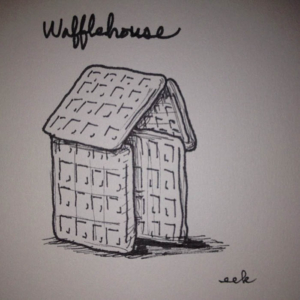 Wafflehouse
eek